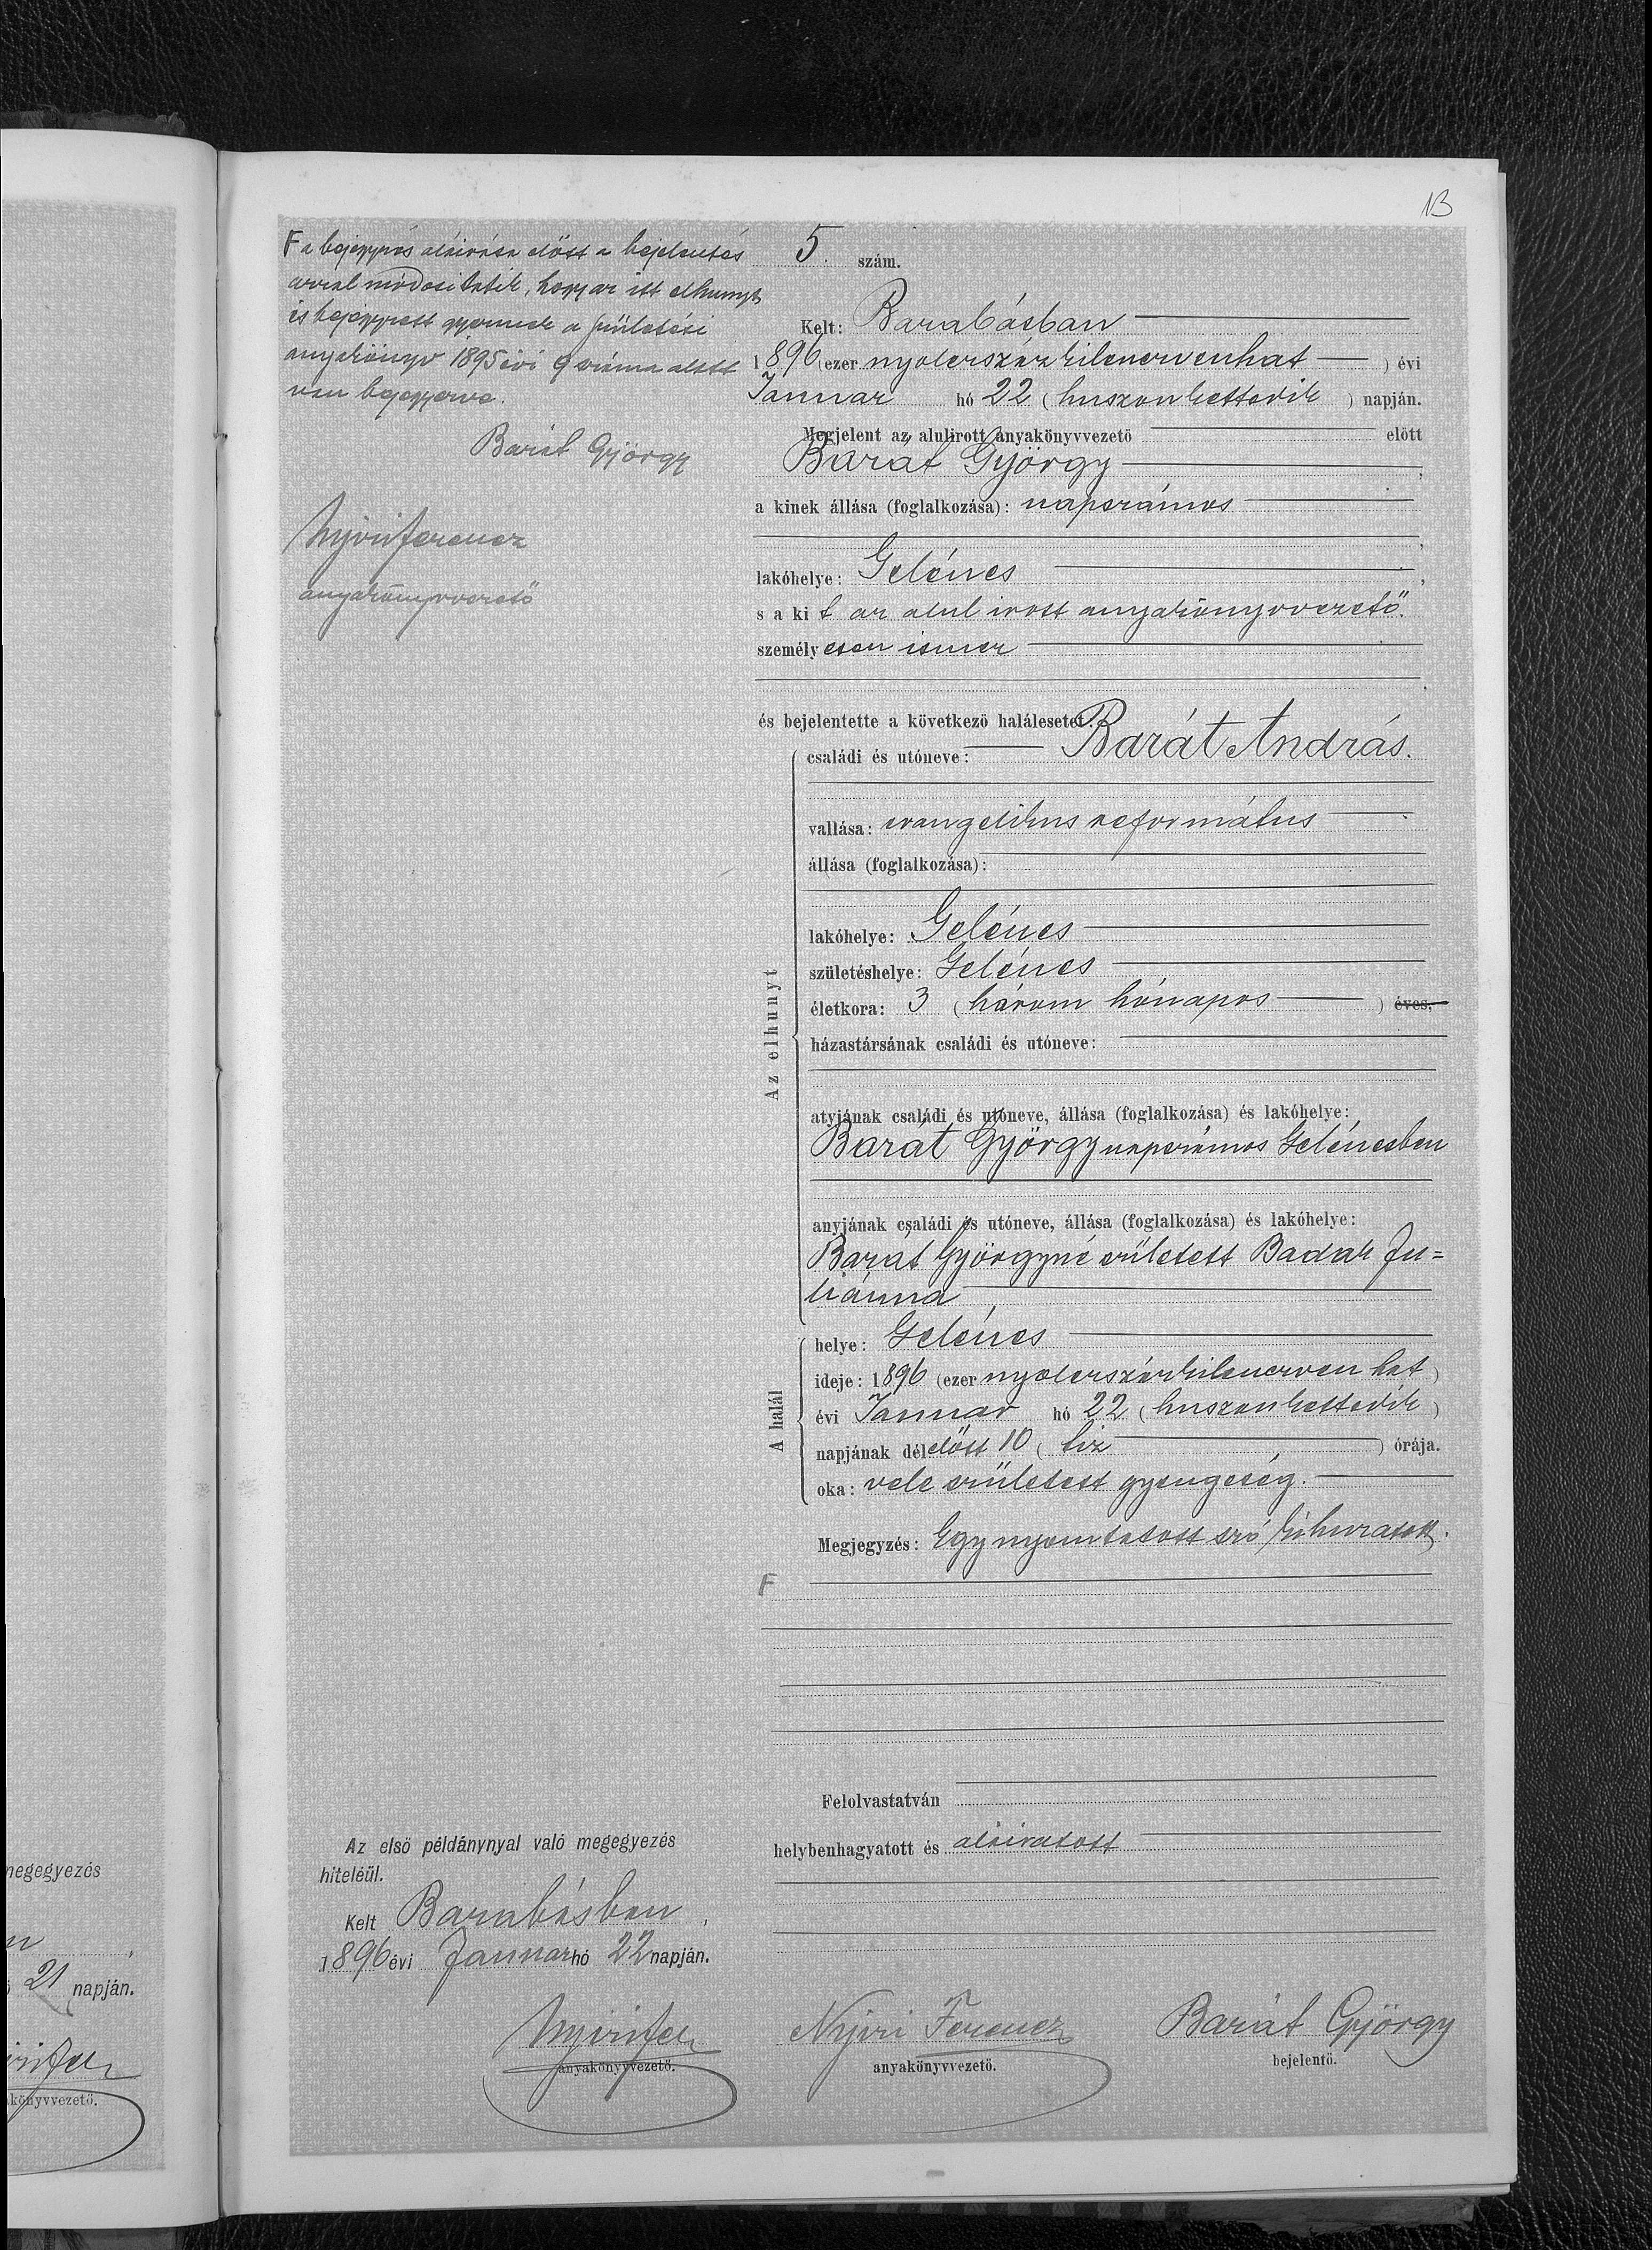 13
F a bejegyzés aláirása előtt a bejelentés
avval módosittatik, hogy az itt elhunyt
és bejegyzett gyermek a születési
anyakönyv 1895 évi 9 száma alatt
van bejegyezve.
Barát György
Nyiri Ferencz
anyakönyvvezető
5. szám.
Kelt: Barabásban
1896 (ezer nyolczszázkilenczvenhat ) évi
Januar hó 22 ( huszonkettedik ) napján.
Megjelent az alulirott anyakönyvvezető előtt
Barát György ,
a kinek állása (foglalkozása): napszámos
,
lakóhelye: Gelénes ,
s a kit az alulirott anyakönyvvezető
személyesen ismer
.
és bejelentette a következő halálesetet:
Az elhunyt
családi és utóneve: Barát András.
vallása: evangelikus református
állása (foglalkozása):
lakóhelye: Gelénes
születéshelye: Gelénes
életkora: 3 ( három hónapos ) éves,
házastársának családi és utóneve:
atyjának családi és utóneve, állása (foglalkozása) és lakóhelye:
Barát György napszámos Gelénesben
anyjának családi és utóneve, állása (foglalkozása) és lakóhelye:
Barát Györgyné született Badak Ju=
liánna
A halál
helye: Gelénes
ideje: 1896 (ezer nyolczszázkilenczven hat )
évi Januar hó 22 ( huszonkettedik )
napjának délelőtt 10 ( tiz ) órája.
oka: vele született gyengeség.
Megjegyzés: Egy nyomtatott szó kihuzatott.
F
Felolvastatván
helybenhagyatott és aláiratott
Az első példánynyal való megegyezés
hiteléül.
Kelt Barabásban ,
1896 évi Januar hó 22 napján.
Nyiri Fer
anyakönyvvezető.
Nyiri Ferencz
anyakönyvvezető.
Barát György
bejelentő.
megegyezés
21 napján.
akönyvvezető.